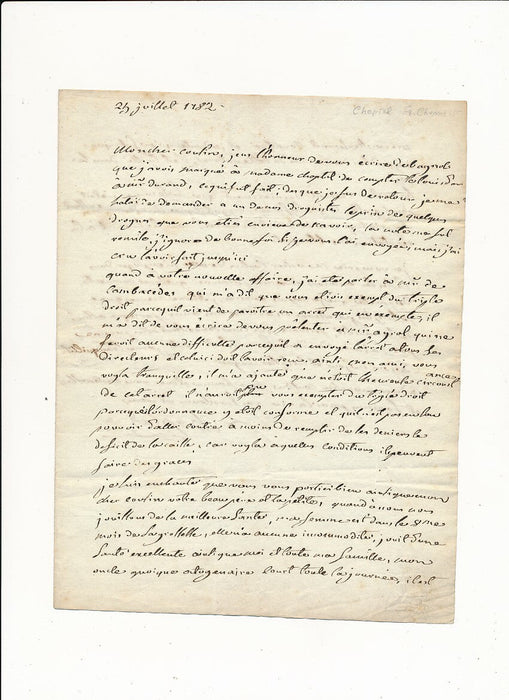 24 juillet 1782
Chaptal
Mon cher cousin, j'eus l'honneur de vous écrire de bagnols
que j'avois marqué à madame chaptal de compter
à mr durand, ce qui fut fait, dès que je fus de retour, je me
hatai de demander à un de nos droguistes le prix de quelques
drogues que vous etiès envieux de scavoir, la note me fut
remise, j'ignore de bonne foi si je vous l'ai envoyée, mais j'ai
cru l'avoir fait jusqu'ici
quand à votre nouvelle affaire, j'ai eté parler à mr de
Cambacédes qui m'a dit que vous etiois exempt du triple
droit parcequ'il vient de paroitre un arret qui en exempte, il
m'a dit de vous écrire de vous présenter à mr qui ne
feroit aucune difficulté parcequ'il a envoyé l'arret à tous les
Directeurs et celuici doit l'avoir reçu, ainsi mon ami, vous
voyla tranquilles, il m'a ajouté que n'etoit
de cet arret il n'auroit pu vous exempter du triple droit
parceque l'ordonnance y etoit conforme et qu'il n'est pas en leur
pouvoir d'aller contre à moins de remplir de les deniers le
deficit de la caisse, car voyla à quelles conditions ils peuvent
faire des graces
je suis enchanté que vous vous portiès bien
cher cousin votre beaupère et la petite, quand à nous nous
jouissons de la meilleure santé, ma femme est dans le
mois de sa grossesse, elle n'a aucune incommodité, jouit d'une
santé excellente ainsi que moi et toute ma famille, mon
oncle quoique octogenaire court toute la journée, il est